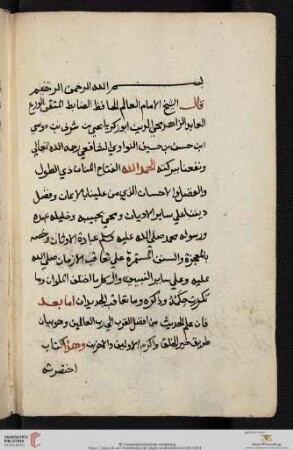 بسم الله الرحمن الرحيم
قال الشيخ الامام العالم الحافظ الضابط المتقن الورع
العابد الزاهد محي الدين ابو زكريا يحيى بن شرف بن
ابن حسن بن حسين النواوي الشافعي رحمه الله تعالى
ونفعنا ببركته الحمد لله الفتاح المنان ذي الطول
والفضل والاحسان الذي من علينا بالايمان وفضل
ديننا على ساير الاديان ومحى بحبيبه وخليله عبده
ورسوله محمد صلى الله عليه وسلم عبادة الاوثان وخصه
بالمعجزة والسنن المستمرة على تعاقب الازمان صلى الله
عليه وعلى ساير النبيين وال كل ما اختلف الملوان وما
تكررت حكمه وذكره وما تعاقب الجديدان اما بعد
فان علم الحديث من افضل القرب الى رب العالمين وهو بيان
طريق خير الخلق واكرم الاولين والاخرين وهذا كتاب
اختصرته